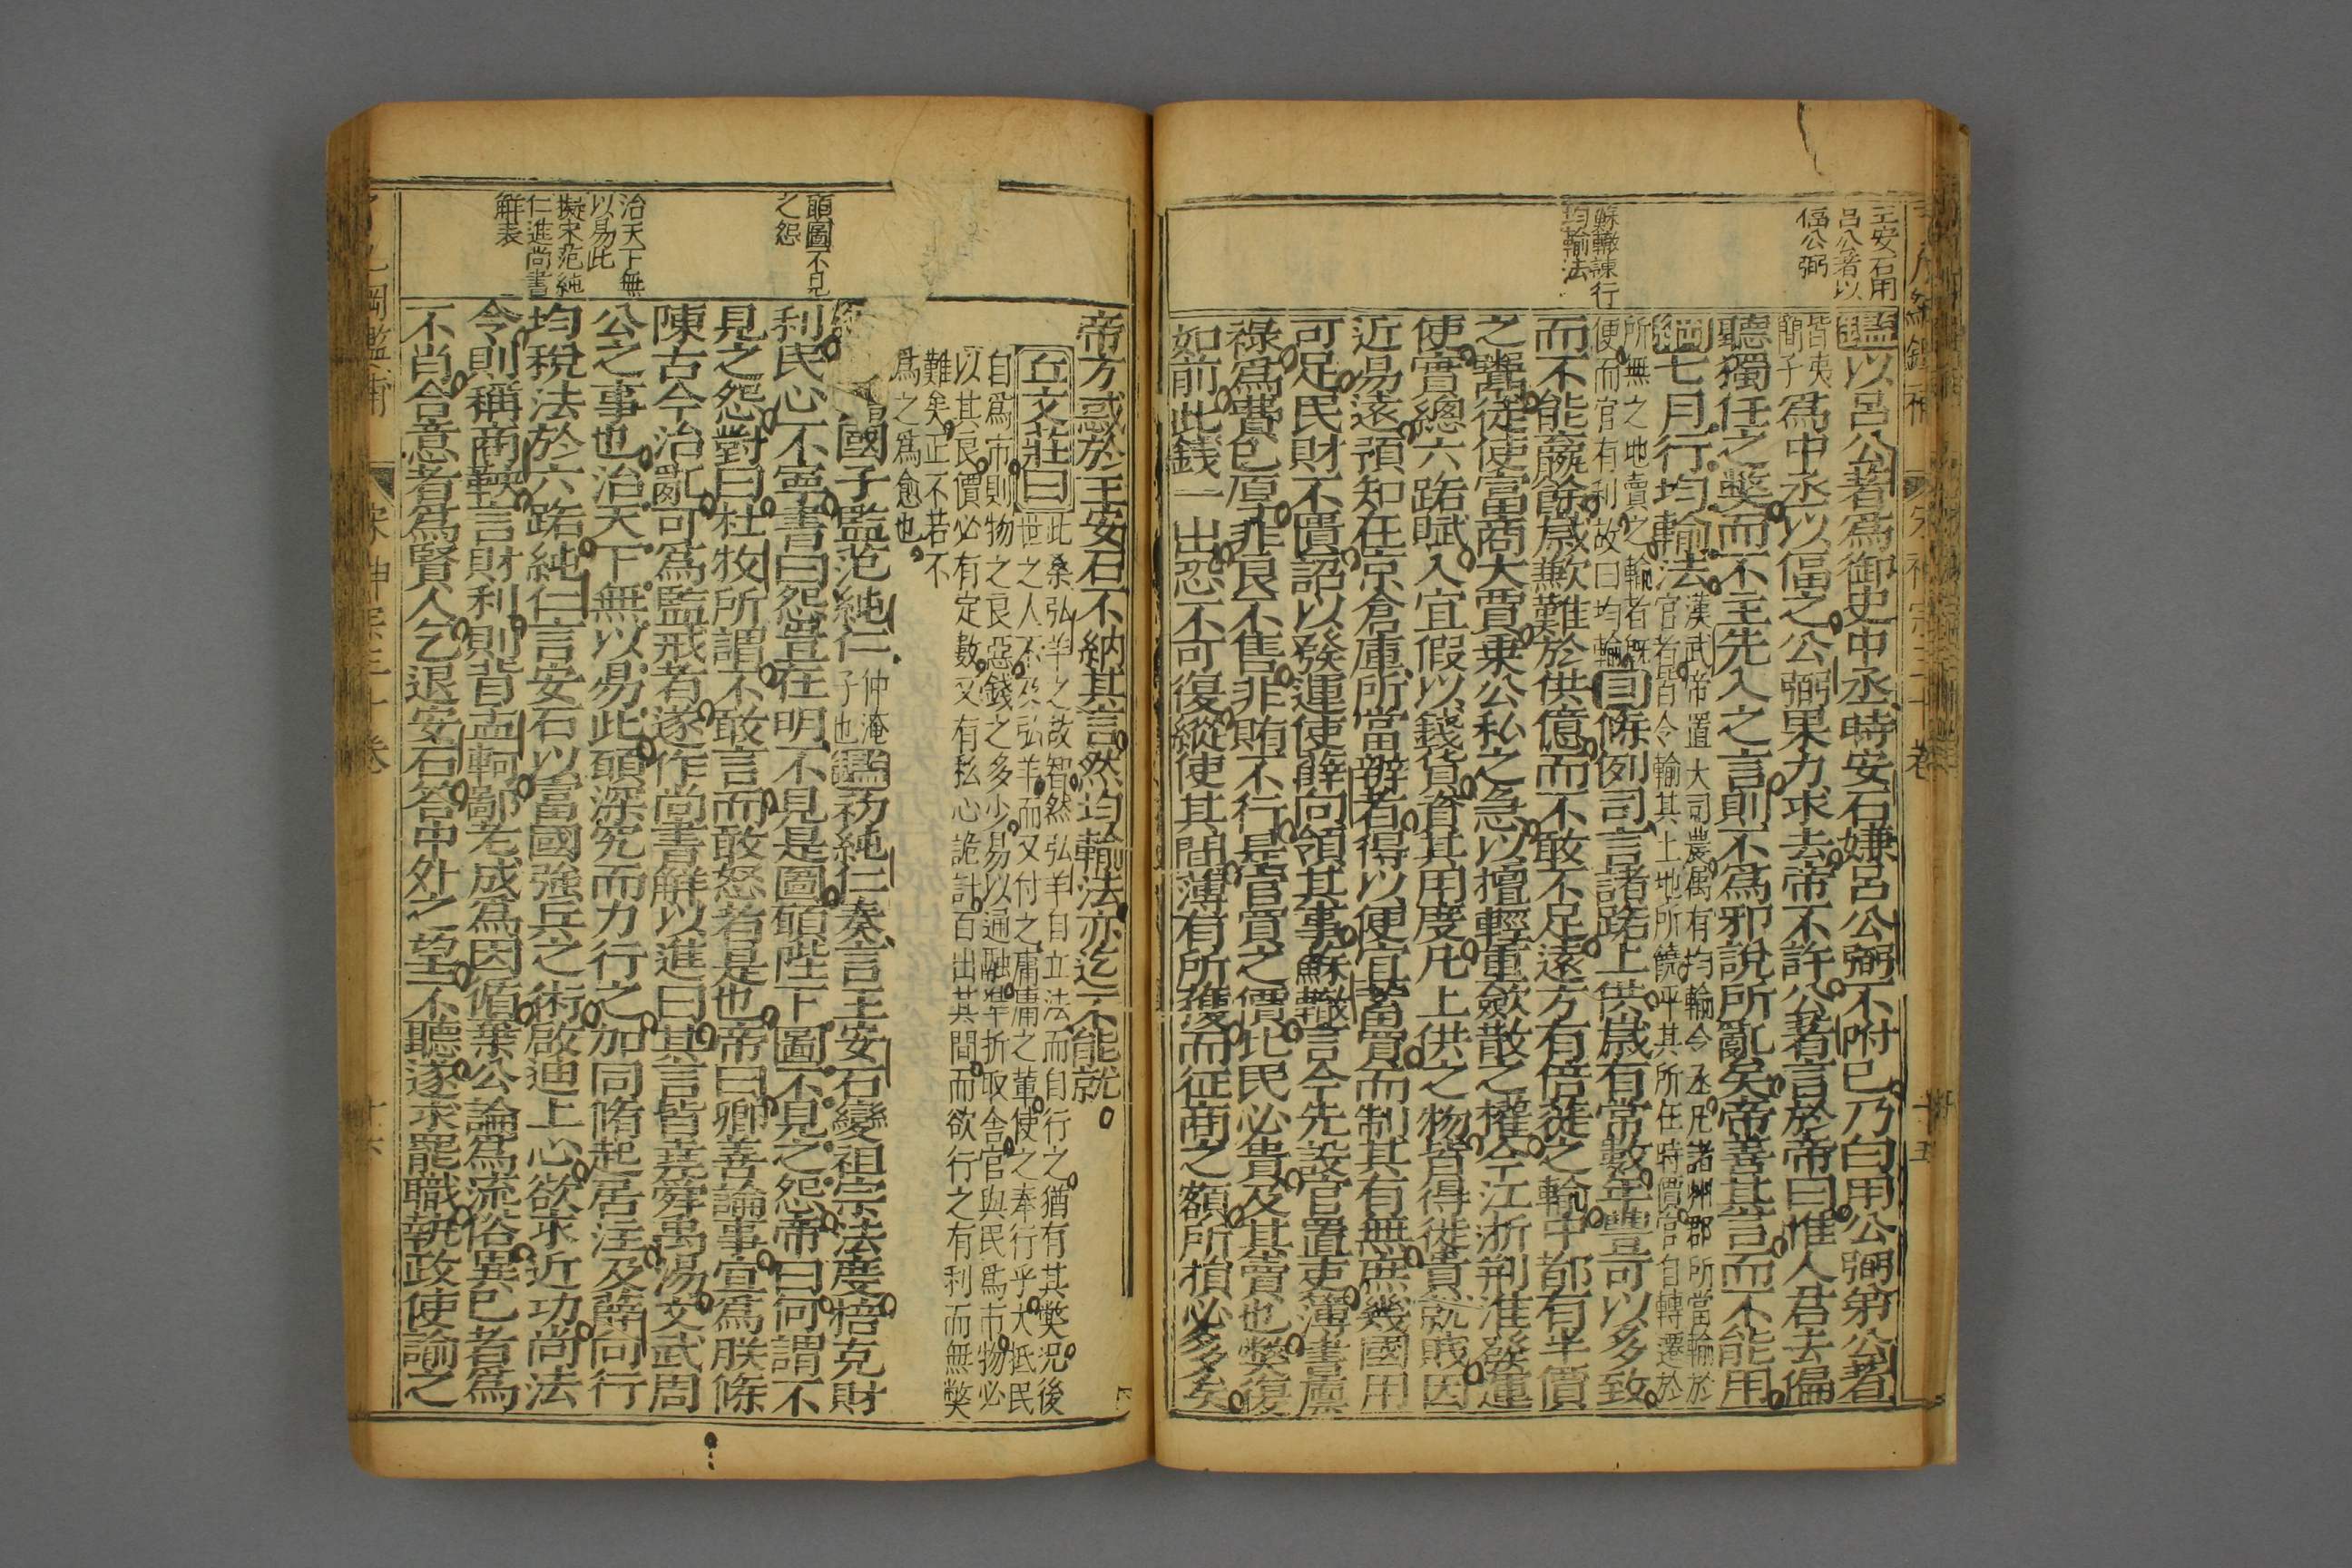 王安石用
呂公著以
偪公弼
蘇轍諫行
均輸法
鑑以呂公著爲御史中丞時安石嫌呂公弼不附已乃白用公弼弟公著
皆夷
簡子
爲中丞以偪之公弼果力求去帝不許公著言於帝曰惟人君去偏
聽獨任之獘而不主先入之言則不爲邪說所亂矣帝善其言而不能用
綱七月行均輸法
漢武帝置大司農属有均輸令丞凡諸州郡所當輸於
官者皆令輸其土地所饒平其所在時價官自轉遷於
所無之地賣之輸者既
便而官有利故曰均輸
目條例司言諸路上供歲有常數年豐可以多致
而不能贏餘歲歉難於供億而不敢不足遠方有倍徙之輸中都有半價
之鬻徒使富商大賈乗公私之急以擅輕重歛散之權今江浙荆淮發運
使實總六路賦入宜假以錢貨資其用度凡上供之物皆得徙貴就賎因
近易遠預知在京倉庫所當辦者得以便宜蓄買而制其有無庶幾國用
可足民財不匱詔以發運使薛向領其事蘇轍言今先設官置吏簿書廩
祿爲費已厚非良不售非賄不行是官買之價比民必貴及其賣也獘復
如前此錢一出恐不可復縱使其間薄有所獲而征商之額所損必多矣
帝方惑於王安石不納其言然均輸法亦迄不能就
丘文莊曰
此桑弘羊之故智然弘羊自立法而自行之猶有其獘况後
世之人不及弘羊而又付之庸庸之輩使之奉行乎大抵民
自爲市則物之良惡錢之多少易以通融準折取舍官與民爲市物必
以其良價必有定數又有私心詭計百出其間而欲行之有利而無獘
難矣正不若不
爲之爲愈也
顧圖不見
之怨
治天下無
以易此
擬宋范純
仁進尚書
解表
國子監范純仁
仲淹
子也
鑑初純仁奏言王安石變祖宗法度掊克財
利民心不寧書曰怨豈在明不見是圖願陛下圖不見之怨帝曰何謂不
見之怨對曰杜牧所謂不敢言而敢怒者是也帝曰卿善論事宜爲朕條
陳古今治亂可爲監戒者遂作尚書解以進曰其言皆堯舜禹湯文武周
公之事也治天下無以易此願深究而力行之加同脩起居注及薛向行
均稅法於六路純仁言安石以富國強兵之術啟迪上心欲求近功尚法
令則稱商鞅言財利則背孟軻鄙老成爲因循棄公論爲流俗異已者爲
不肖合意者爲賢人乞退安石答中外之望不聽遂求罷職執政使諭之